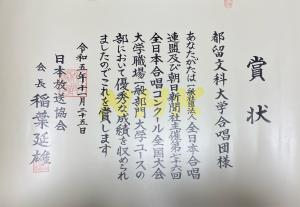 賞状
都留文科大学合唱団様
あなたがたは一般社団法人全日本合唱
連盟及び朝日新聞社主催第七十六回
全日本合唱コンクール全国大会
大学職場一般部門大学ユースの
部において優秀な成績を収められ
ましたのでこれを賞します
令和五年十一月二十五日
日本放送協会
会長 稲葉延雄